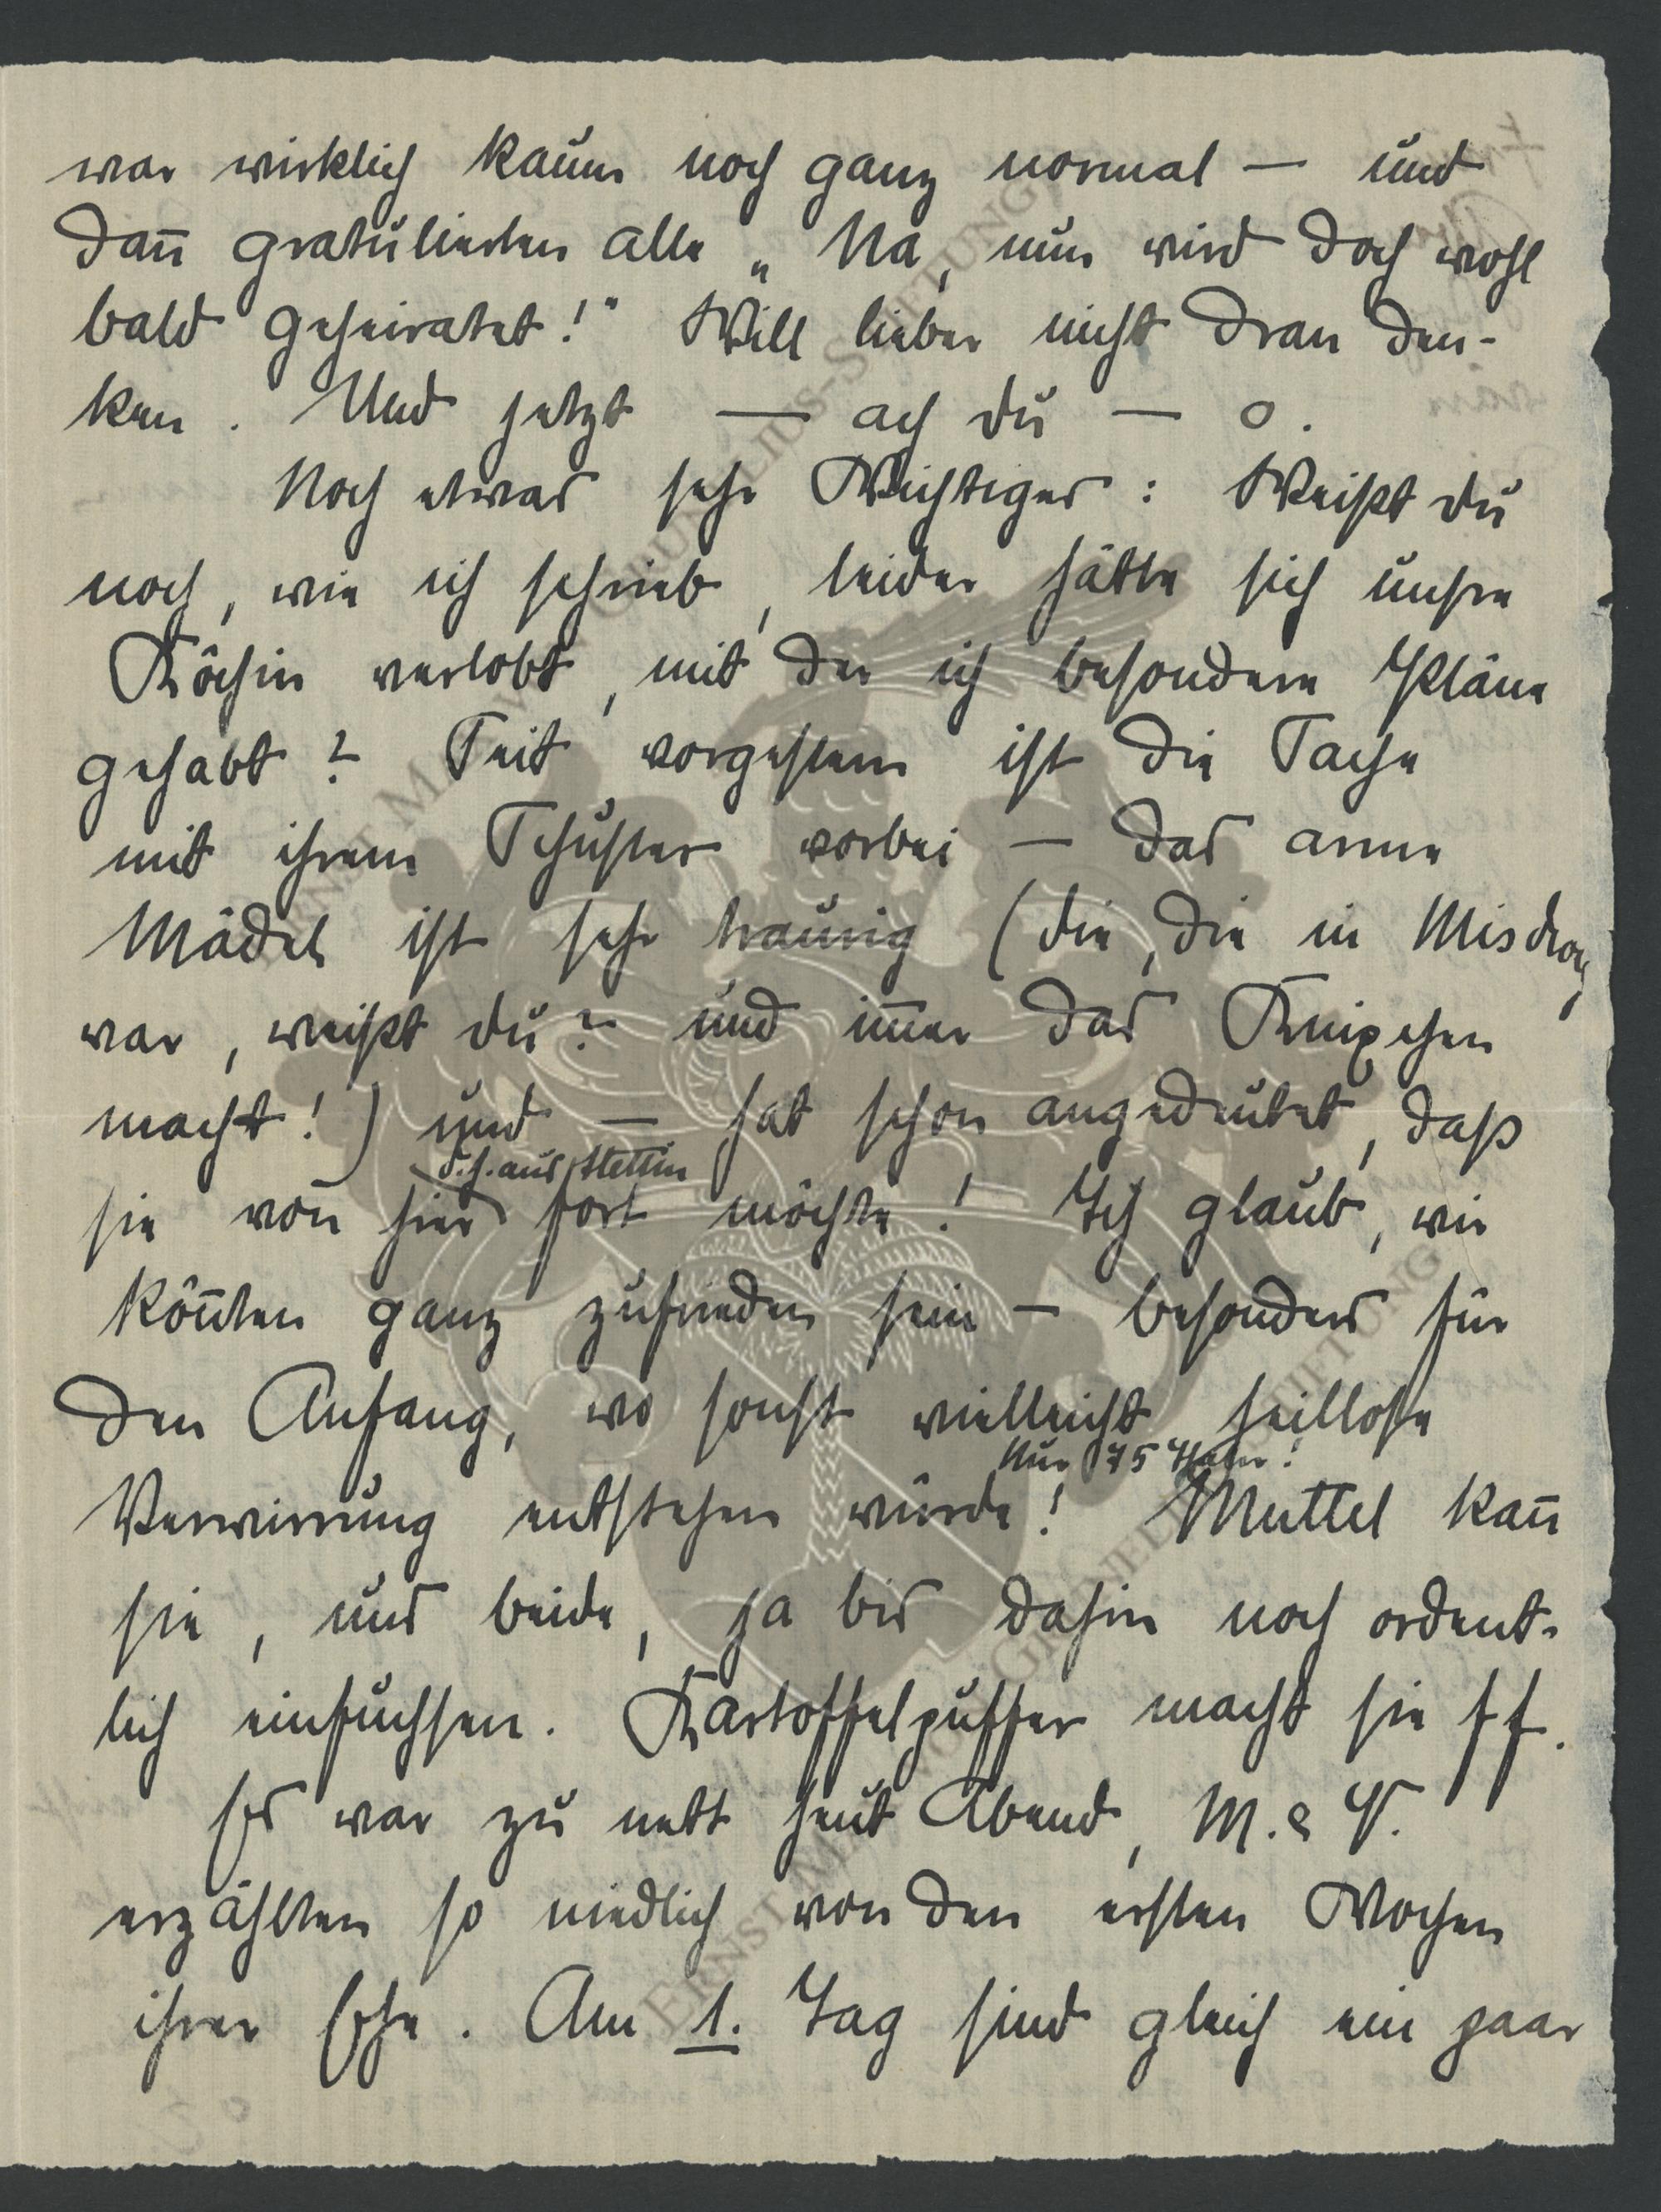 war wirklich kaum noch ganz normal — und
dan̄ gratulierten alle „Na, nun wird doch wohl
bald geheiratet!" Will lieber nicht dran den-
ken. Und jetzt — ach du — o.
Noch etwas sehr Wichtiges: Weißt du
noch, wie ich schrieb, leider hätte sich unsre
Köchin verlobt, mit der ich besondere Pläne
gehabt? Seit vorgestern ist die Sache
mit ihrem Schuster vorbei — das arme
Mädel ist sehr traurig (die, die in Misdroy
war, weißt du? und im̄er das Knixchen
macht!) und — hat schon angedeutet, daß
d.h. aus Stettin
sie von hier fort möchte! Ich glaub, wir
kön̄ten ganz zufrieden sein — besonders für
den Anfang, wo sonst vielleicht heillose
Nur 75 Thaler!
Verwirrung entstehen würde! Muttel kan̄
sie, uns beide, ja bis dahin noch ordent-
lich einfuchsen. Kartoffelpuffer macht sie ff.
Es war zu nett heut Abend, M. & V.
erzählten so niedlich von den ersten Wochen
ihrer Ehe. Am 1. Tag sind gleich ein paar
ERNST MARIUS-GRUNELIUS-STIFTUNG